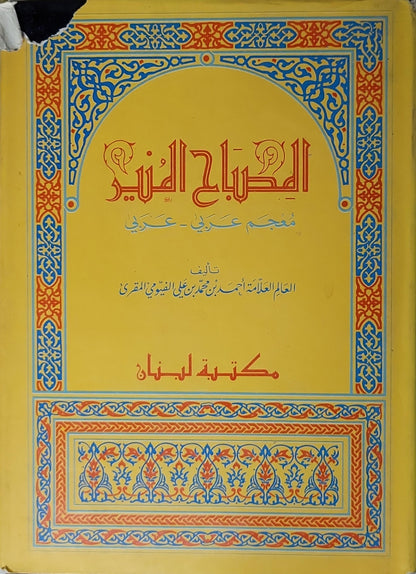 المصباح المنير
معجم عربي - عربي
تأليف
العالم العلامة أحمد بن محمد بن علي الفيومي المقرئ
مكتبة لبنان